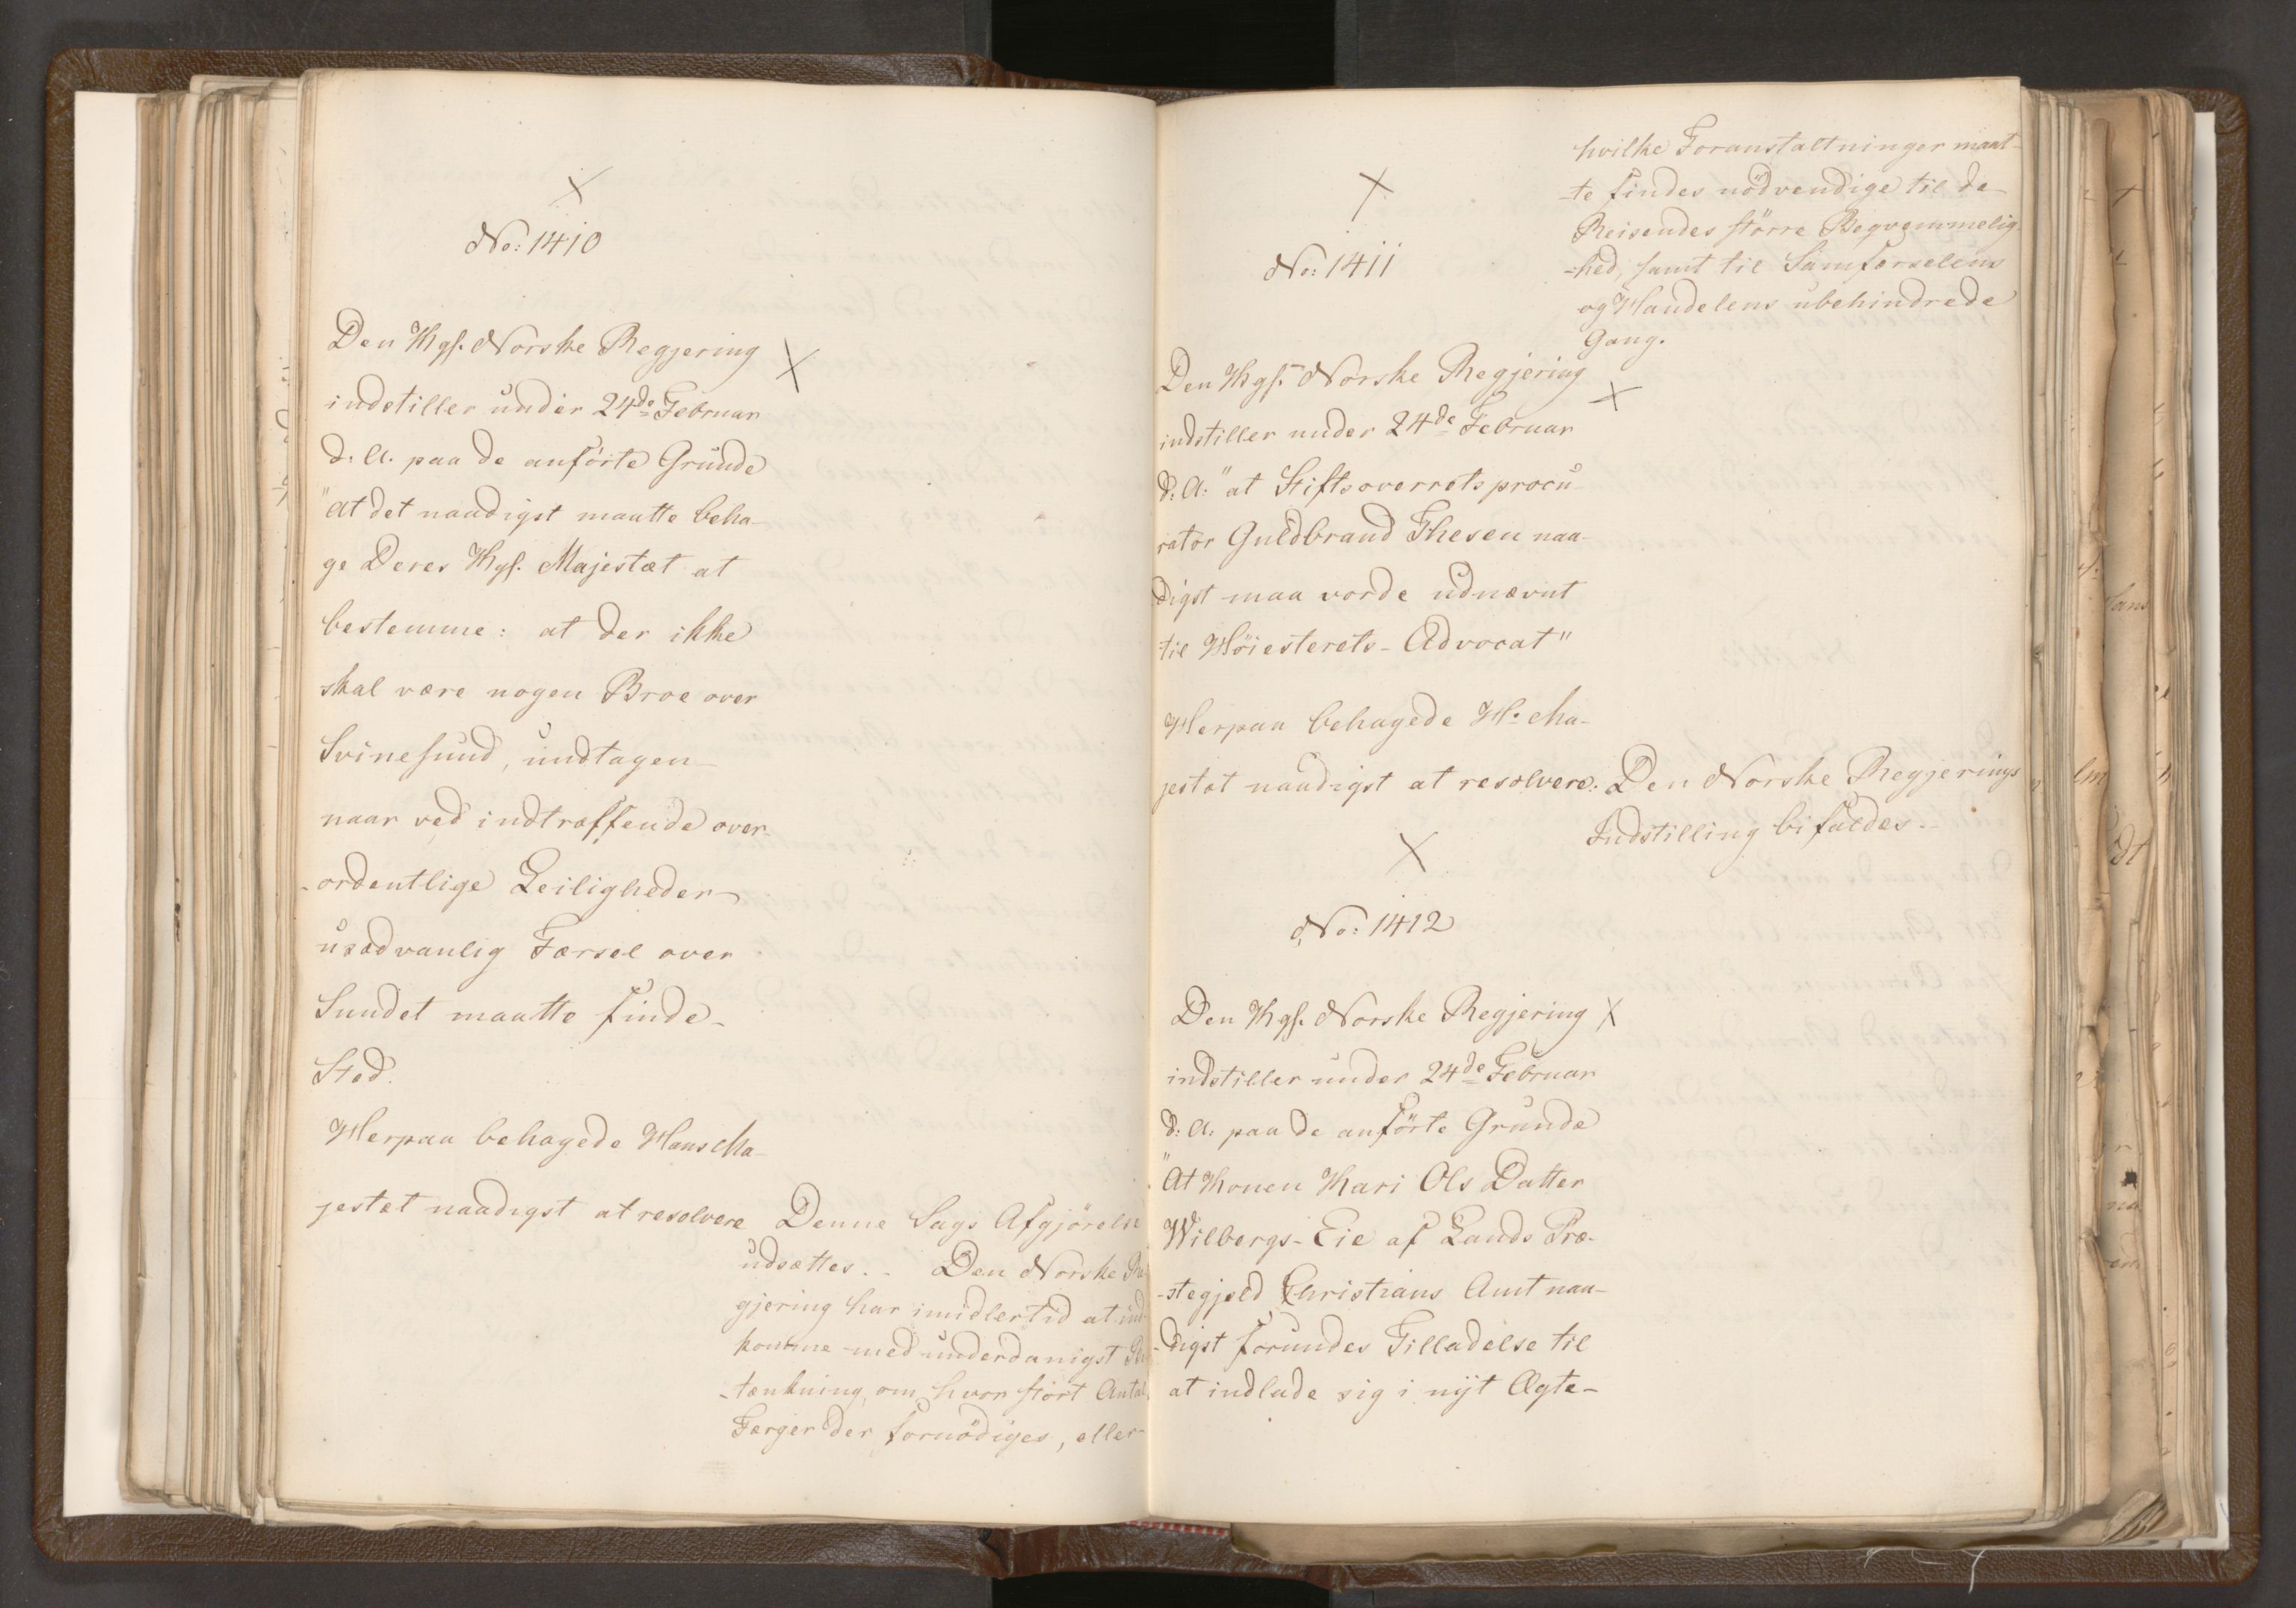 No: 1410
Den Kgl. Norske Regjering
indstiller under 24de Februar
d: A. paa de anförte Grunde
"at det naadigst maatte beha-
ge Deres Kgl. Majestæt at
bestemme: at der ikke
skal være nogen Broe over
Svinesund, undtagen
naar ved indtræffende over-
-ordentlige Leiligheder
usædvanlig Færsel over
Sundet maatte finde
Sted.
Herpaa behagede Hans Ma-
jestæt naadigst at resolvere
Denne Sags Afgjörelse
udsættes. - Den Norske Re
gjering har imidlertid at ind
komme med underdanigst Be
-tænkning, om hvor stort Antal
Færger der fornödiges, eller
hvilke Foranstaltninger maat-
-te findes nödvendige til de
Reisendes större Beqvemmelig-
-hed, samt til Samfærselens
og Handelens ubehindrede
Gang.
No: 1411
Den Kgl. Norske Regjering
indstiller under 24de Februar
d: A: "at Stiftsoverretsprocu-
rator Guldbrand Thesen naa-
digst maa vorde udnævnt
til Höiesterets-Advocat"
Herpaa behagede H: Ma-
jestæt naadigst at resolvere:
Den Norske Regjerings
Indstilling bifaldes.
No: 1412
Den Kgl. Norske Regjering
indstiller under 24de Februar
d: A. paa de anförte Grunde
"At Konen Kari Ols Datter
Wilbergs-Eie af Lands Præ-
-stegjeld Christians Amt naa-
-digst forundes Tilladelse til
at indlade sig i nyt Ægte-